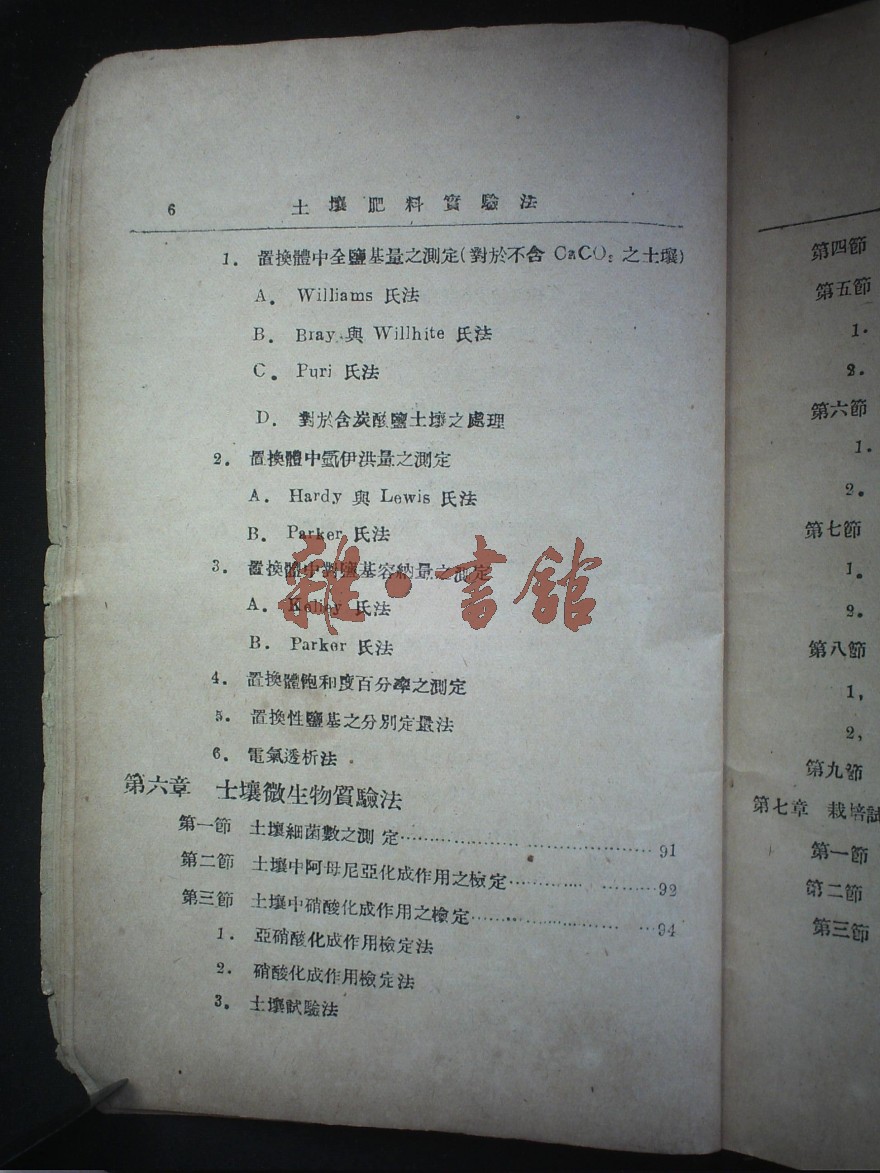 6 土壤肥料實驗法
1. 置換體中全鹽基量之測定(對於不含 CaCO₃ 之土壤)
A. Williams 氏法
B. Bray 與 Willhite 氏法
C. Puri 氏法
D. 對於含炭酸鹽土壤之處理
2. 置換體中氫伊洪量之測定
A. Hardy 與 Lewis 氏法
B. Parker 氏法
3. 置換體中對鹽基容納量之測定
A. Kelley 氏法
B. Parker 氏法
4. 置換體飽和度百分率之測定
5. 置換性鹽基之分別定量法
6. 電氣透析法
第六章 土壤微生物質驗法
第一節 土壤細菌數之測 定……………………………91
第二節 土壤中阿母尼亞化成作用之檢定…………………92
第三節 土壤中硝酸化成作用之檢定……………………94
1. 亞硝酸化成作用檢定法
2. 硝酸化成作用檢定法
3. 土壤試驗法
雜·書館
第四節
第五節
1.
2.
第六節
1.
2.
第七節
1.
2.
第八節
1,
2,
第九節
第七章 栽培試
第一節
第二節
第三節